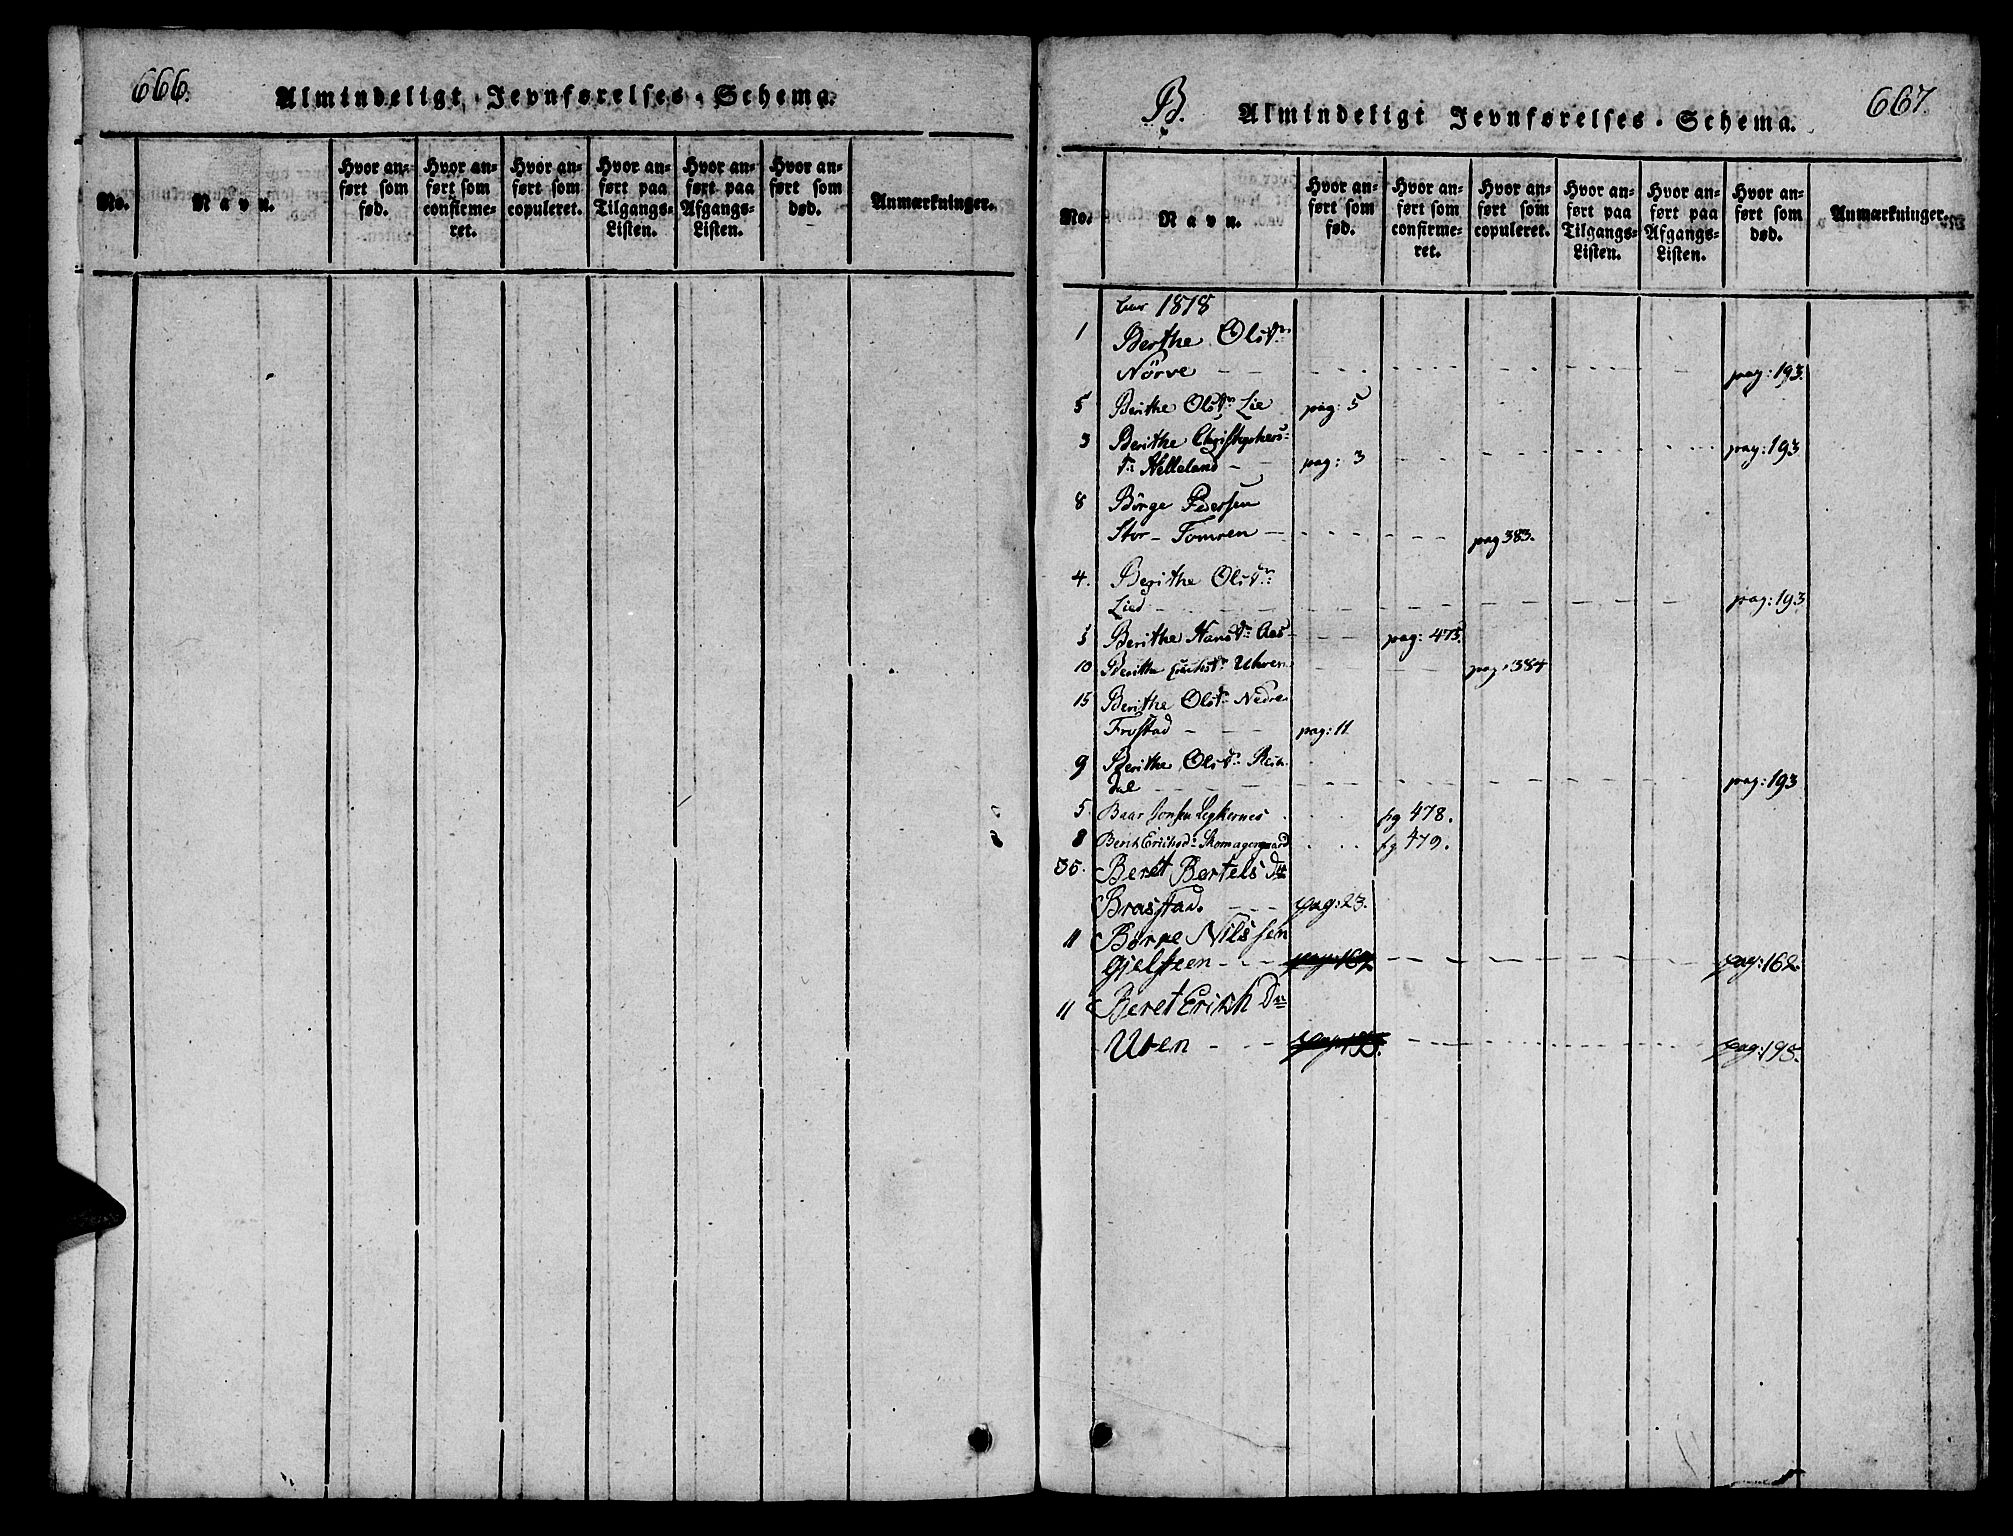 666.
Almindeligt Jevnførelses-Schema.
No.
Navn.
Hvor an-
ført som
fød.
Hvor an-
ført som
confirme-
ret.
Hvor an-
ført som
copuleret.
Hvor an-
ført paa
Tilgangs-
Listen.
Hvor an-
ført paa
Afgangs-
Listen.
Hvor an-
ført som
død.
Anmærkninger.
B.
Almindeligt Jevnførelses-Schema.
667.
No.
Navn.
Hvor an-
ført som
fød.
Hvor an-
ført som
confirme-
ret.
Hvor an-
ført som
copuleret.
Hvor an-
ført paa
Tilgangs-
Listen.
Hvor an-
ført paa
Afgangs-
Listen.
Hvor an-
ført som
død.
Anmærkninger.
1818
1 Berthe Olsdr
Nörve pag: 193.
5 Berithe Olsdr Lie pag: 5
3 Berithe Christophers-
dr Helleland pag: 3 pag: 193
8 Börge Pedersen
Stor-Tomren pag 383.
4. Berithe Olsdr
Lied pag: 193
Berithe Hansdr Aas pag: 475.
10 Berithe Uhren pag: 384
15 Berithe Olsdr Nedre
Frostad pag: 11
9 Berithe Olsdr Rein
dal pag: 193
5 Baar Jonsen pg 478.
8 Skomagergaard pg 479.
35. Beret Bertels Dtr
Brastad. pag: 23.
11 Børge Nilssen
Gjelsteen pag: 162 pag: 162.
11 Beret Erich Dtr
Uren pag: 195. pag: 195.